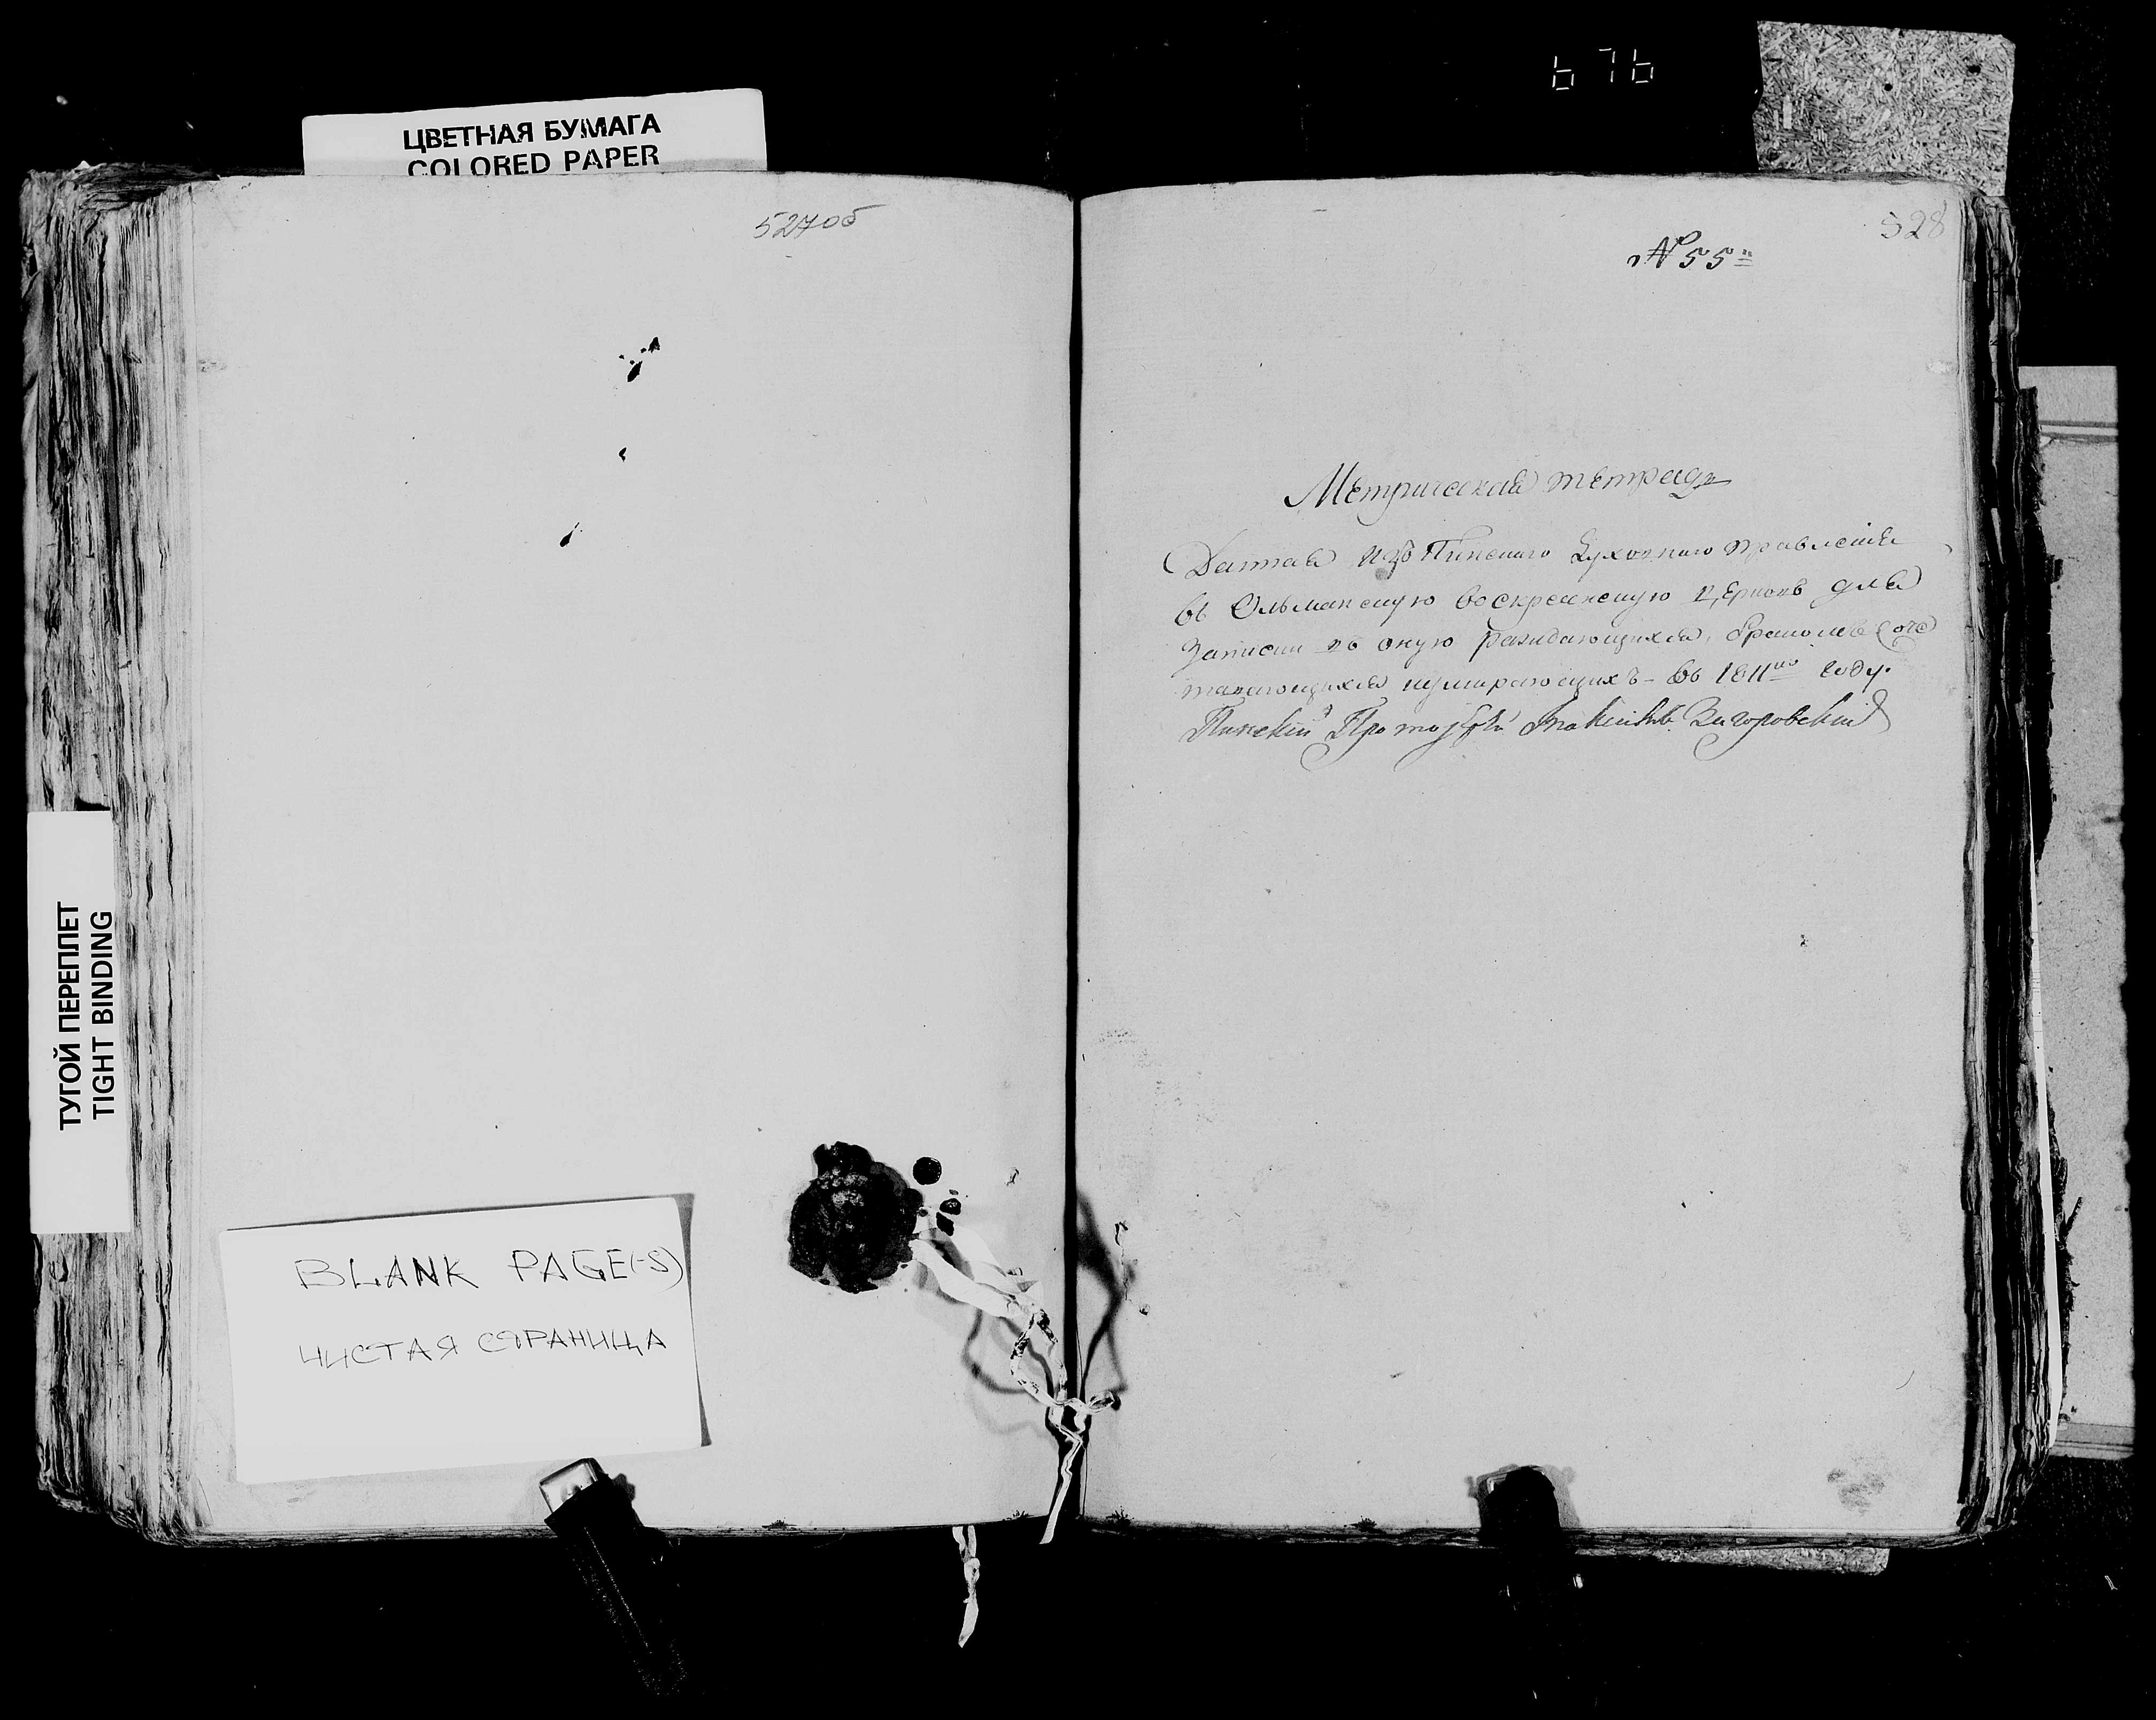 676
ЦВЕТНАЯ БУМАГА
COLORED PAPER
527об
528
№ 55
Метрическая тетрадь
Данная изъ Пинскаго Духовнаго правленія
въ Ольманскую воскресенскую церковь для
записи въ оную раждающихся, браком соче
тающихся иумирающихъ - въ 1811мъ году.
Пинскій Загоровскій
ТУГОЙ ПЕРЕПЛЕТ
TIGHT BINDING
BLANK PAGE(-S)
ЧИСТАЯ СТРАНИЦА